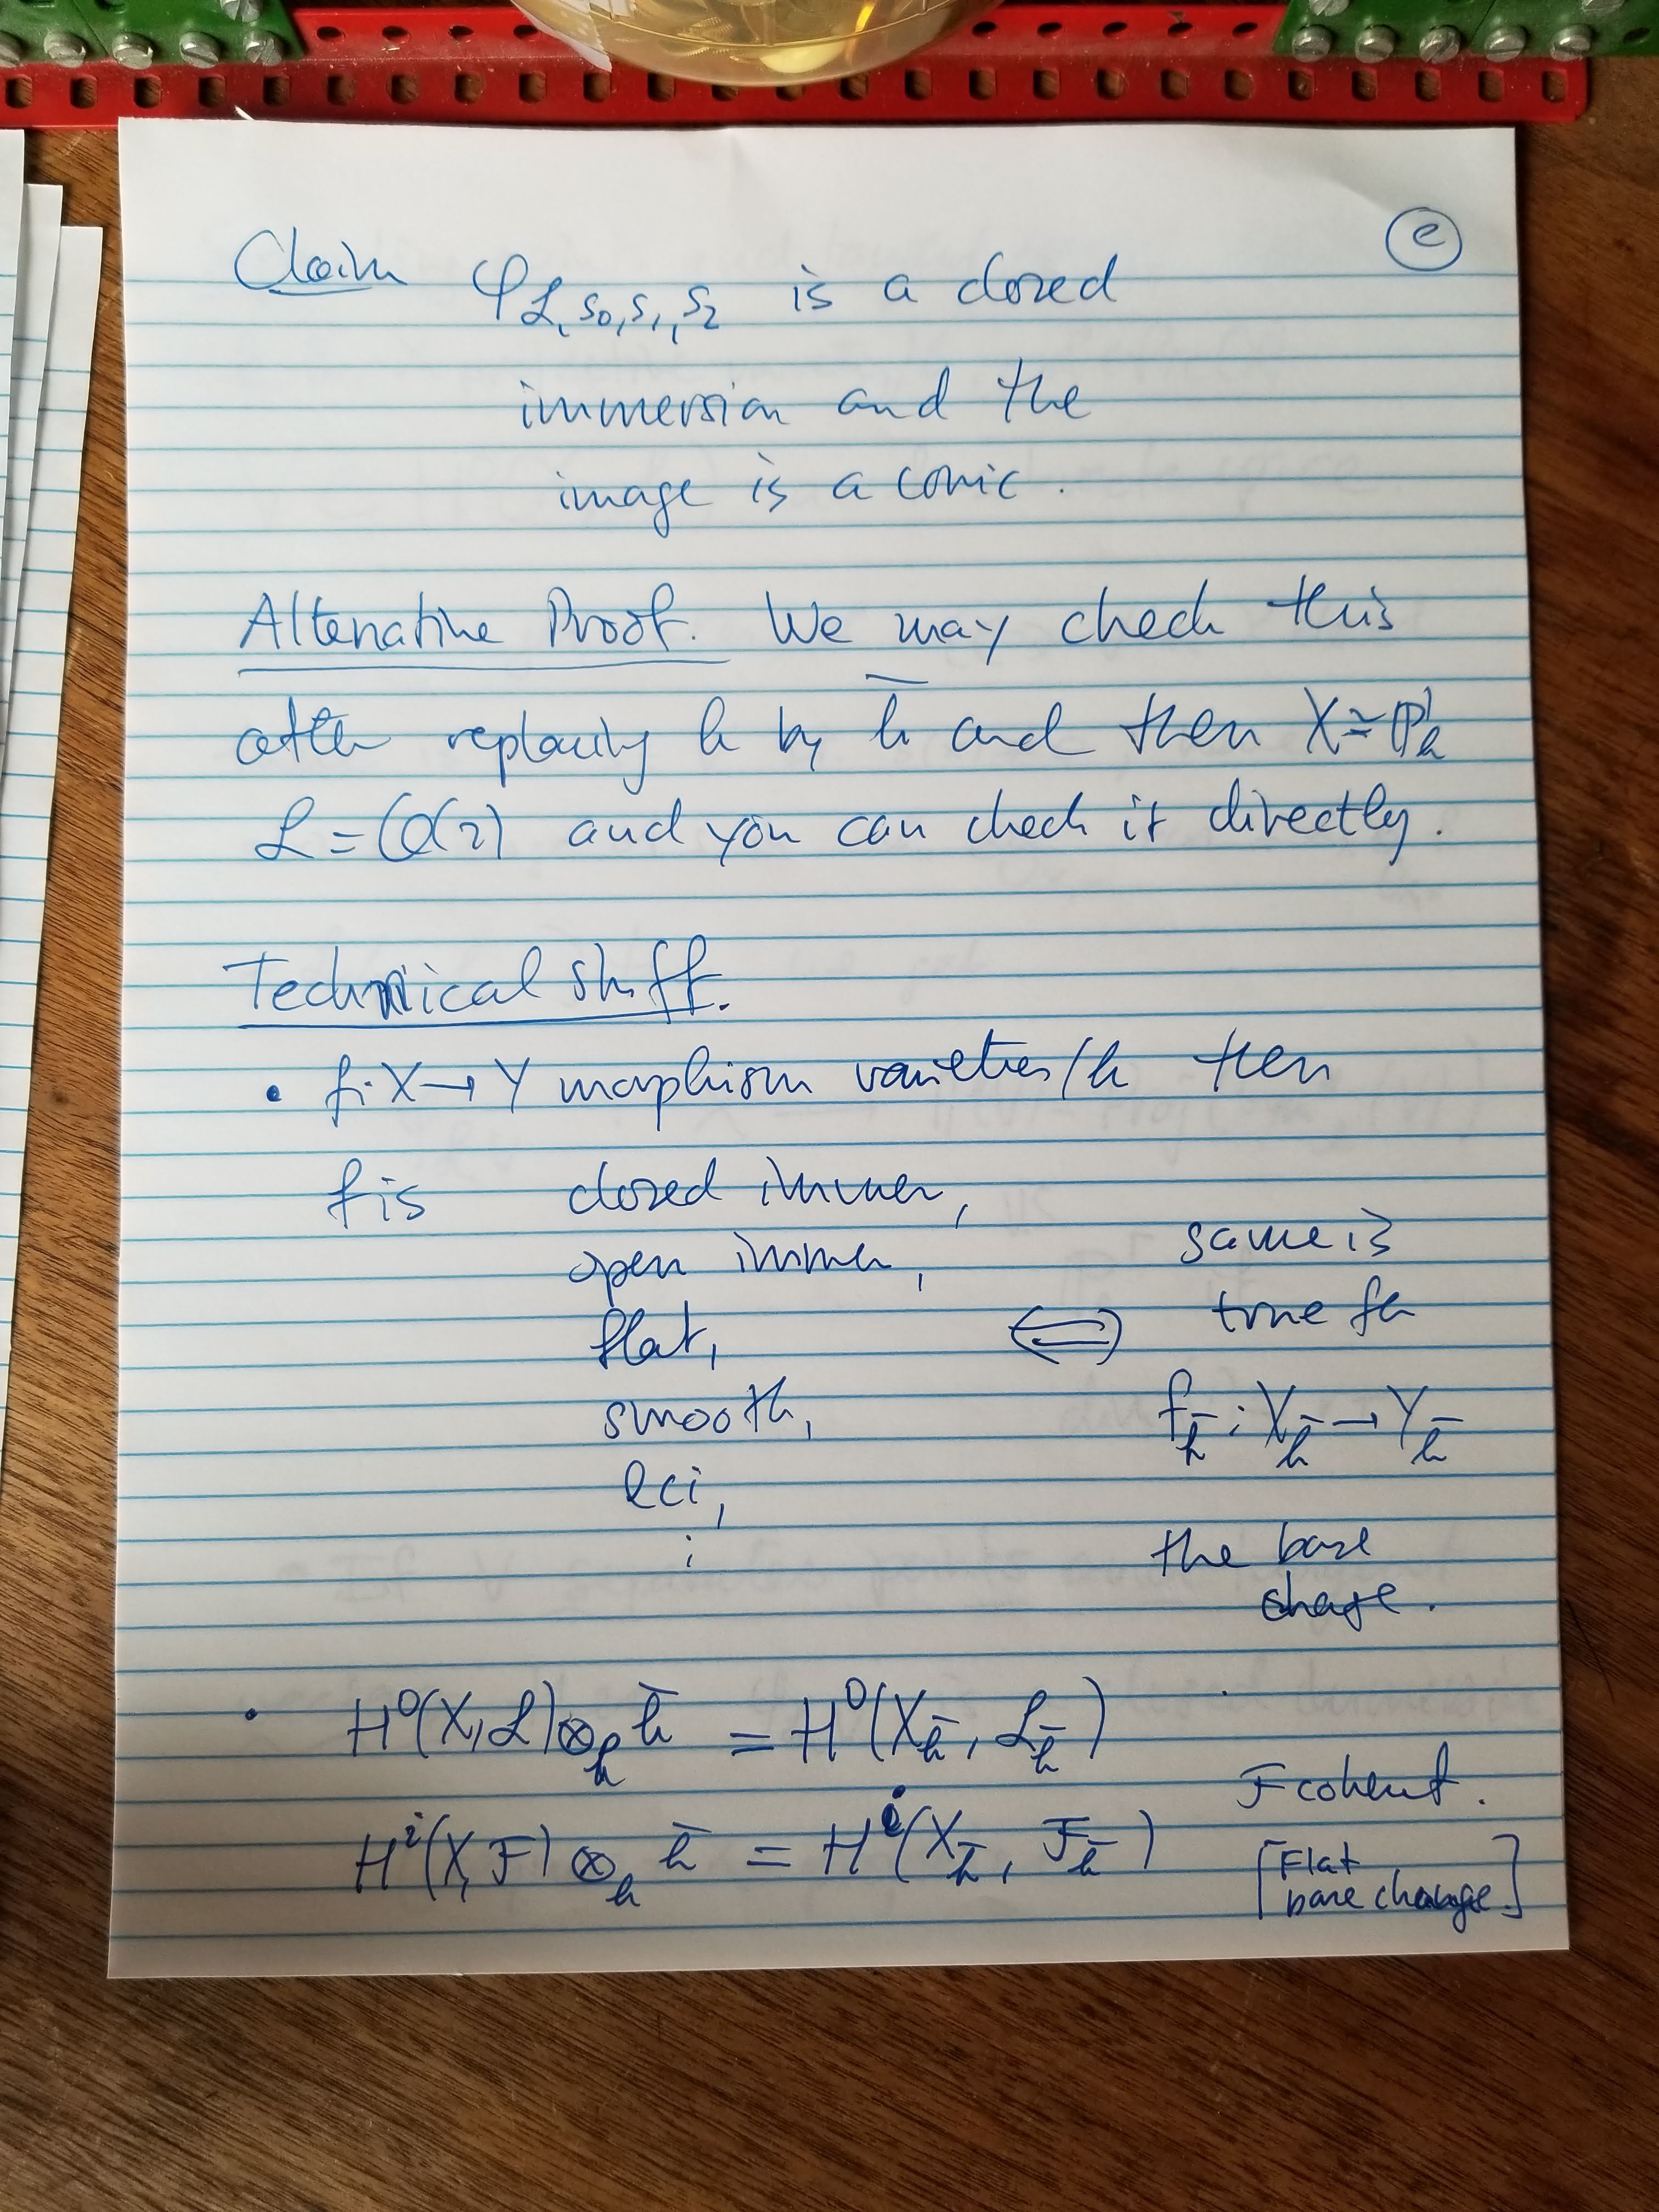 e
Claim φ_{ℒ, s₀, s₁, s₂} is a closed
immersion and the
image is a conic.
Alternative Proof. We may check this
after replacing k by k̄ and then X ≅ ℙ¹_k
ℒ = O(2) and you can check it directly.
Technical stuff.
• f: X → Y morphism varieties/k then
f is closed immer,
open immer,
flat,
smooth,
lci,
⋮
⟺
same is
true for
f_k̄ : X_k̄ → Y_k̄
the base
change.
• H⁰(X, ℒ) ⊗_k k̄ = H⁰(X_k̄, ℒ_k̄)
Hⁱ(X, F) ⊗_k k̄ = Hⁱ(X_k̄, F_k̄)
F coherent.
[Flat
base change]